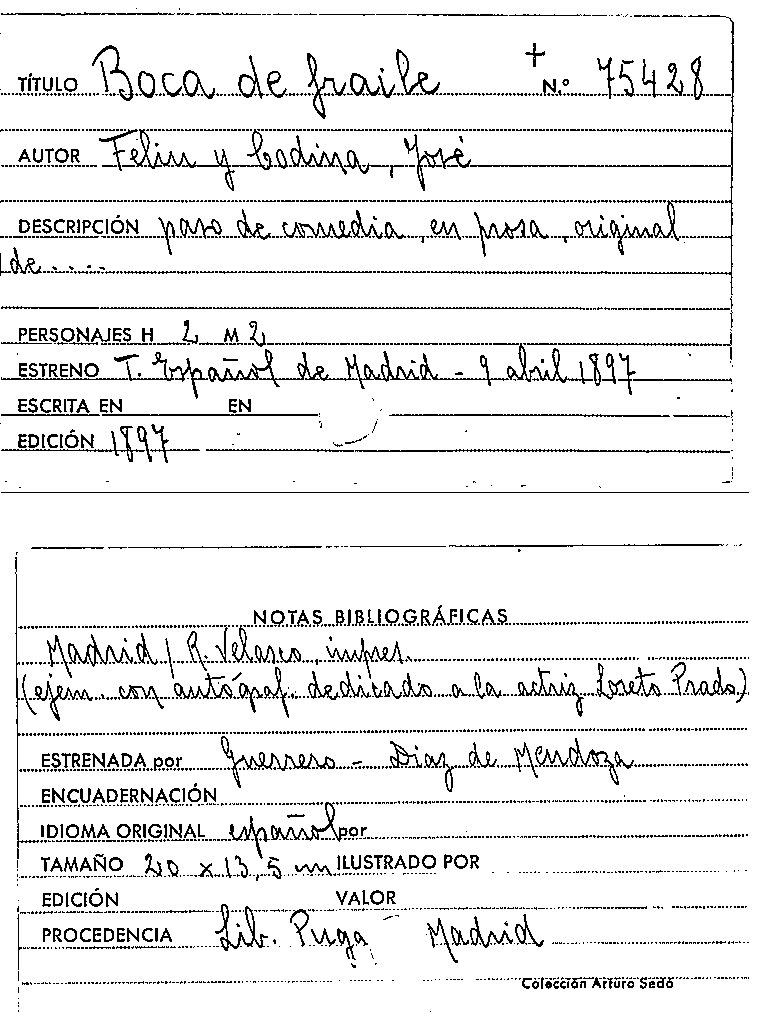 TÍTULO Boca de fraile + N.º 75428
AUTOR Feliu y Codina, José
DESCRIPCIÓN paso de comedia, en prosa, original
de....
PERSONAJES H 2 M 2
ESTRENO T. Español de Madrid - 9 abril 1897
ESCRITA EN EN
EDICIÓN 1897
NOTAS BIBLIOGRÁFICAS
Madrid / R. Velasco, impres.
(ejem. con autógraf. dedicado a la actriz Loreto Prado)
ESTRENADA por Guerrero - Diaz de Mendoza
ENCUADERNACIÓN
IDIOMA ORIGINAL español por
TAMAÑO 20 x 13,5 cm ILUSTRADO POR
EDICIÓN VALOR
PROCEDENCIA Lib. Puga - Madrid
Colección Arturo Sedó